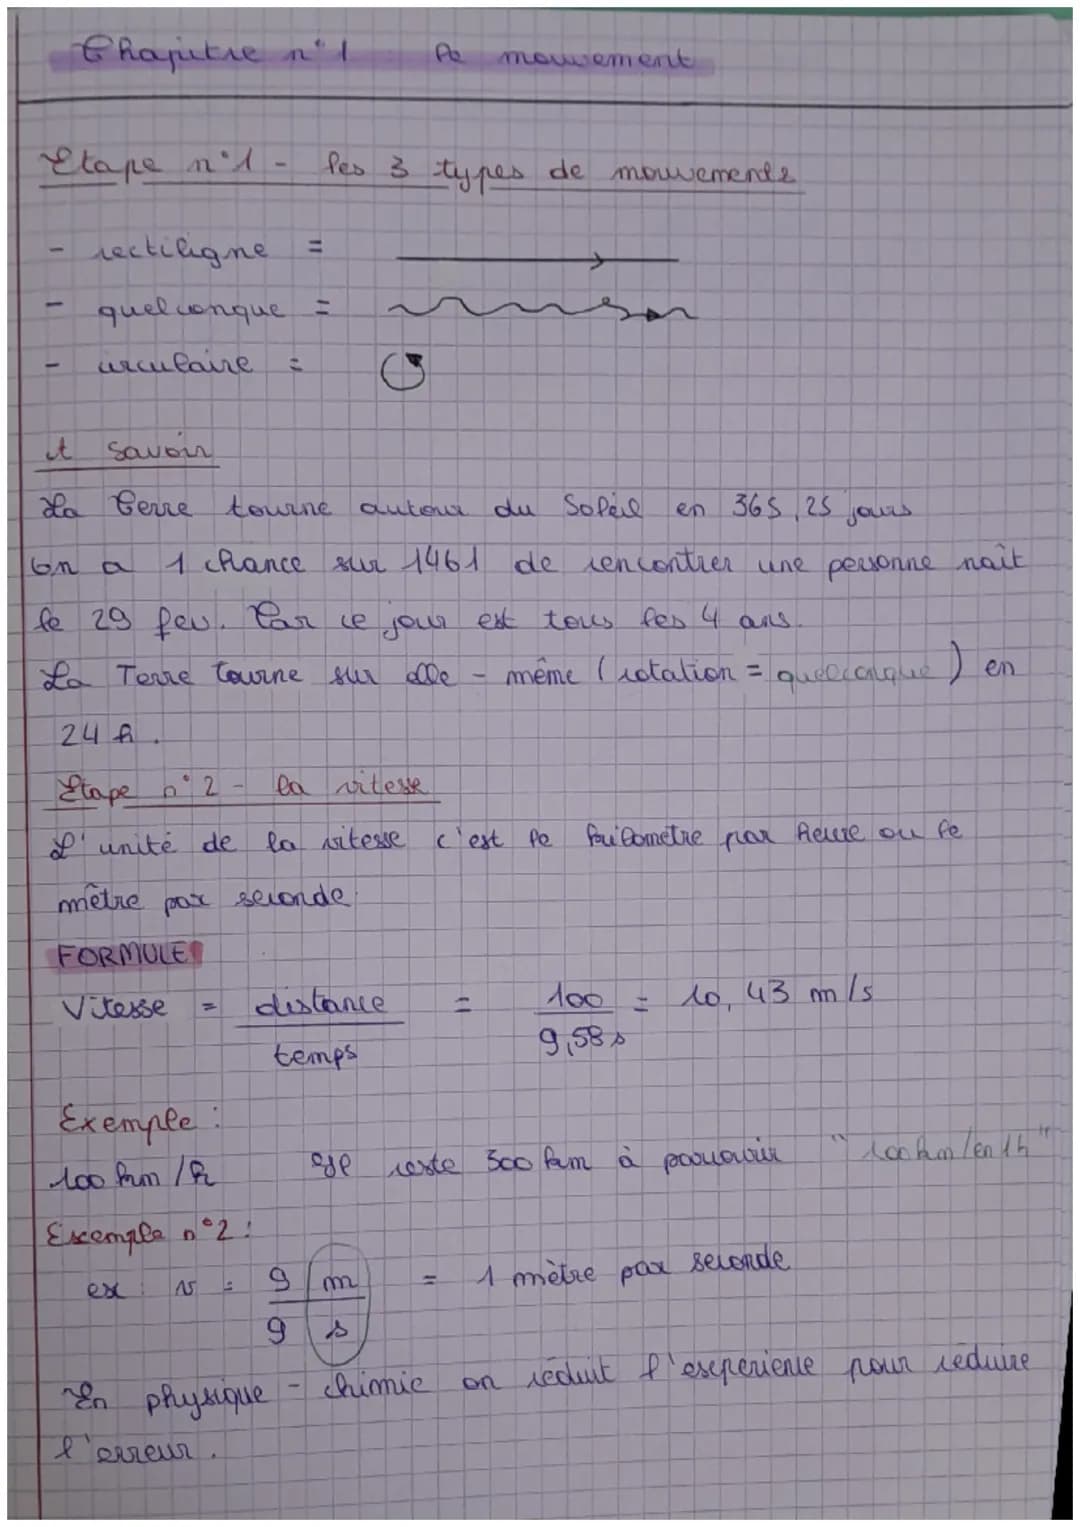 Chapitre n°1 le mouvement
Etape n°1 - les 3 types de mouvements
- rectiligne =
- quelconque =
- circulaire =
A savoir
La Terre tourne autour du Soleil en 365,25 jours
On a 1 chance sur 1461 de rencontrer une personne naît
le 29 fev. Car ce jour est tous les 4 ans.
La Terre tourne sur elle - même (rotation = quelconque) en
24 h.
Etape n°2 - la vitesse
L'unité de la vitesse c'est le kilometre par heure ou le
mètre par seconde.
FORMULE
Vitesse = distance = 100 = 10,43 m/s
temps 9,58 s
Exemple :
100 km/h Il reste 300 km à parcourir "100km/en 1h"
Exemple n°2 :
ex : v = 9 m = 1 mètre par seconde
9 s
En physique - chimie on réduit l'experience pour réduire
l'erreur.